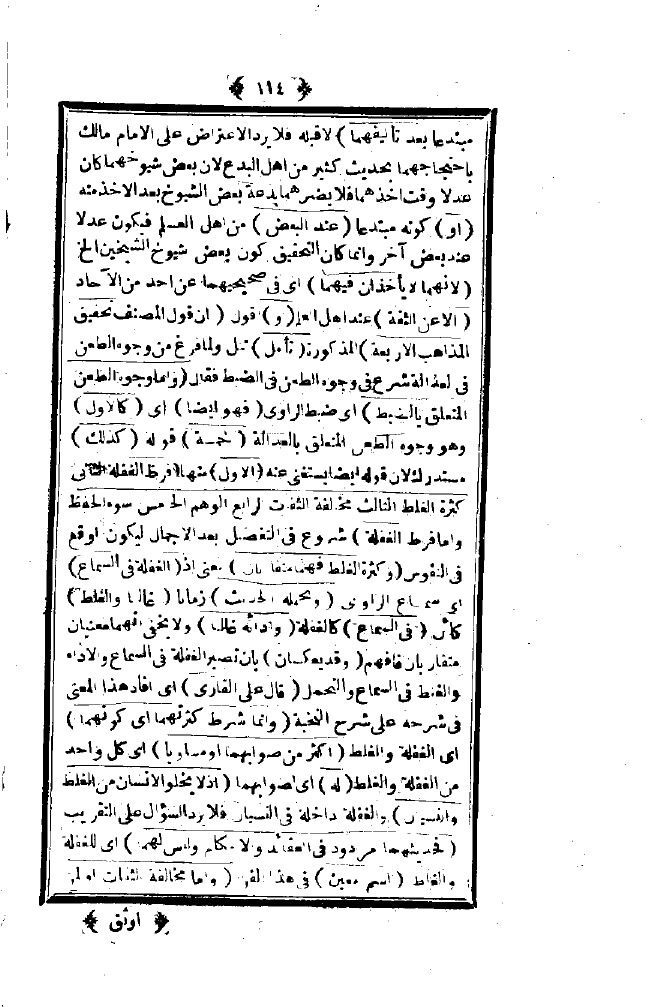 ﴿ ١١٤ ﴾
مبتدعا بعد تأليفهما ) لا قبله فلا يرد الاعتراض على الامام مالك
باحتجاجهما بحديث كثير من اهل البدع لان بعض شيوخهما كان
عدلا وقت اخذهما فلا يضرهما بدعة بعض الشيوخ بعد الاخذ منه
( او ) كونه مبتدعا ( عند البعض ) من اهل العلم فيكون عدلا
عند بعض آخر وانما كان التحقيق كون بعض شيوخ الشيخين الخ
( لانهما لا يأخذان فيهما ) اى فى صحيحيهما عن احد من الآحاد
( الا عن الثقة ) عند اهل العلم ( و ) قول ( ان قول المصنف تحقيق
المذاهب الاربعة ) المذكورة ( تأمل ) تنل ولما فرغ من وجوه الطعن
فى العدالة شرع فى وجوه الطعن فى الضبط فقال ( واما وجوه الطعن
المتعلق بالضبط ) اى ضبط الراوى ( فهو ايضا ) اى ( كالاول )
وهو وجوه الطعن المتعلق بالعدالة ( خمسة ) قوله ( كذلك )
مستدرك لان قوله ايضا يستغنى عنه ( الاول ) منها ( فرط الغفلة الثانى
كثرة الغلط الثالث مخالفة الثقات الرابع الوهم الخامس سوء الحفظ
واما فرط الغفلة ) شروع فى التفصيل بعد الاجمال ليكون اوقع
فى النفوس ( وكثرة الغلط فهما متقاربان ) يعنى اذ ( الغفلة فى السماع )
اى سماع الراوى ( وتحمله الحديث ) زمانا ( غالبا والغلط )
كائن ( فى اسماع ) كالغفلة ( وادائه غالبا ) ولا يخفى انهما معنيان
متقاربان فافهم ( وقد يعكسان ) بان تصير الغفلة فى السماع والاداء
والغلط فى السماع والتحمل ( قال على القارى ) اى افاد هذا المعنى
فى شرحه على شرح النخبة ( وانما شرط كثرتهما اى كونهما )
اى الغفلة والغلط ( اكثر من صوابهما او مساويا ) اى كل واحد
من الغفلة والغلط ( له ) اى لصوابهما ( اذ لا يخلو الانسان من الغلط
والنسيان ) والغفلة داخلة فى النسيان فلا يرد السؤال على التقريب
( فحديثهما مردود فى العقائد والاحكام وليس لهما ) اى للغفلة
والغلط ( اسم معين ) فى هذا الفن ( واما مخالفة الثقات اولمن
﴿ اوثق ﴾